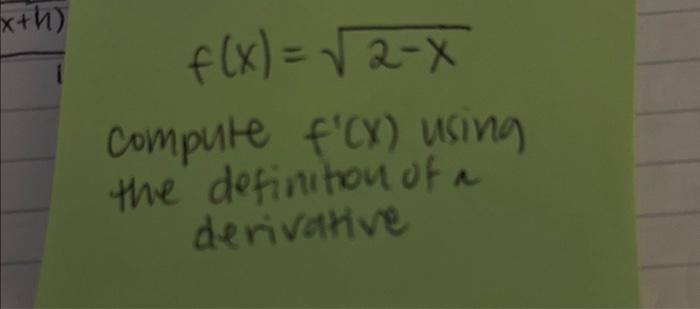 x+h)
f(x) = √2-x
compute f'(x) using
the definition of a
derivative